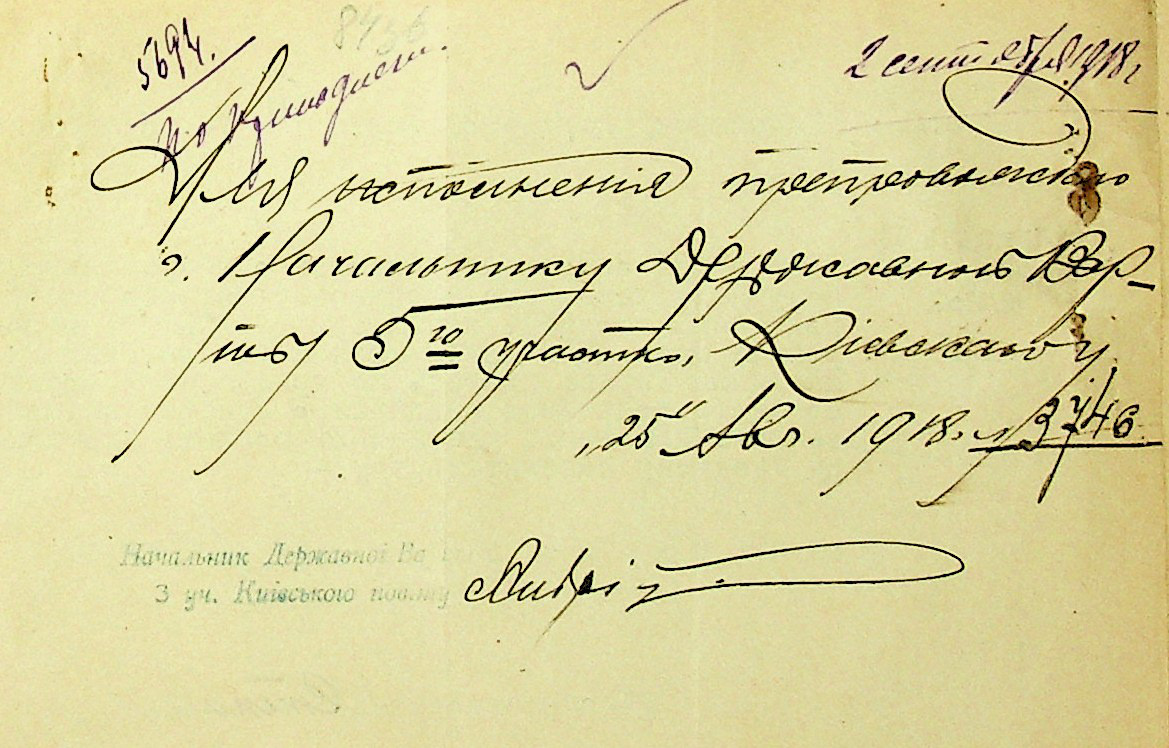 5694.
2 сентября 1918 г
Для исполненія препровождаю
г. Начальнику Державной Вар-
ты 5го участка, Кіевскаго у.
„25" Авг. 1918 г. № 3746
Начальник Державної Ва
3 уч. Київського повіту